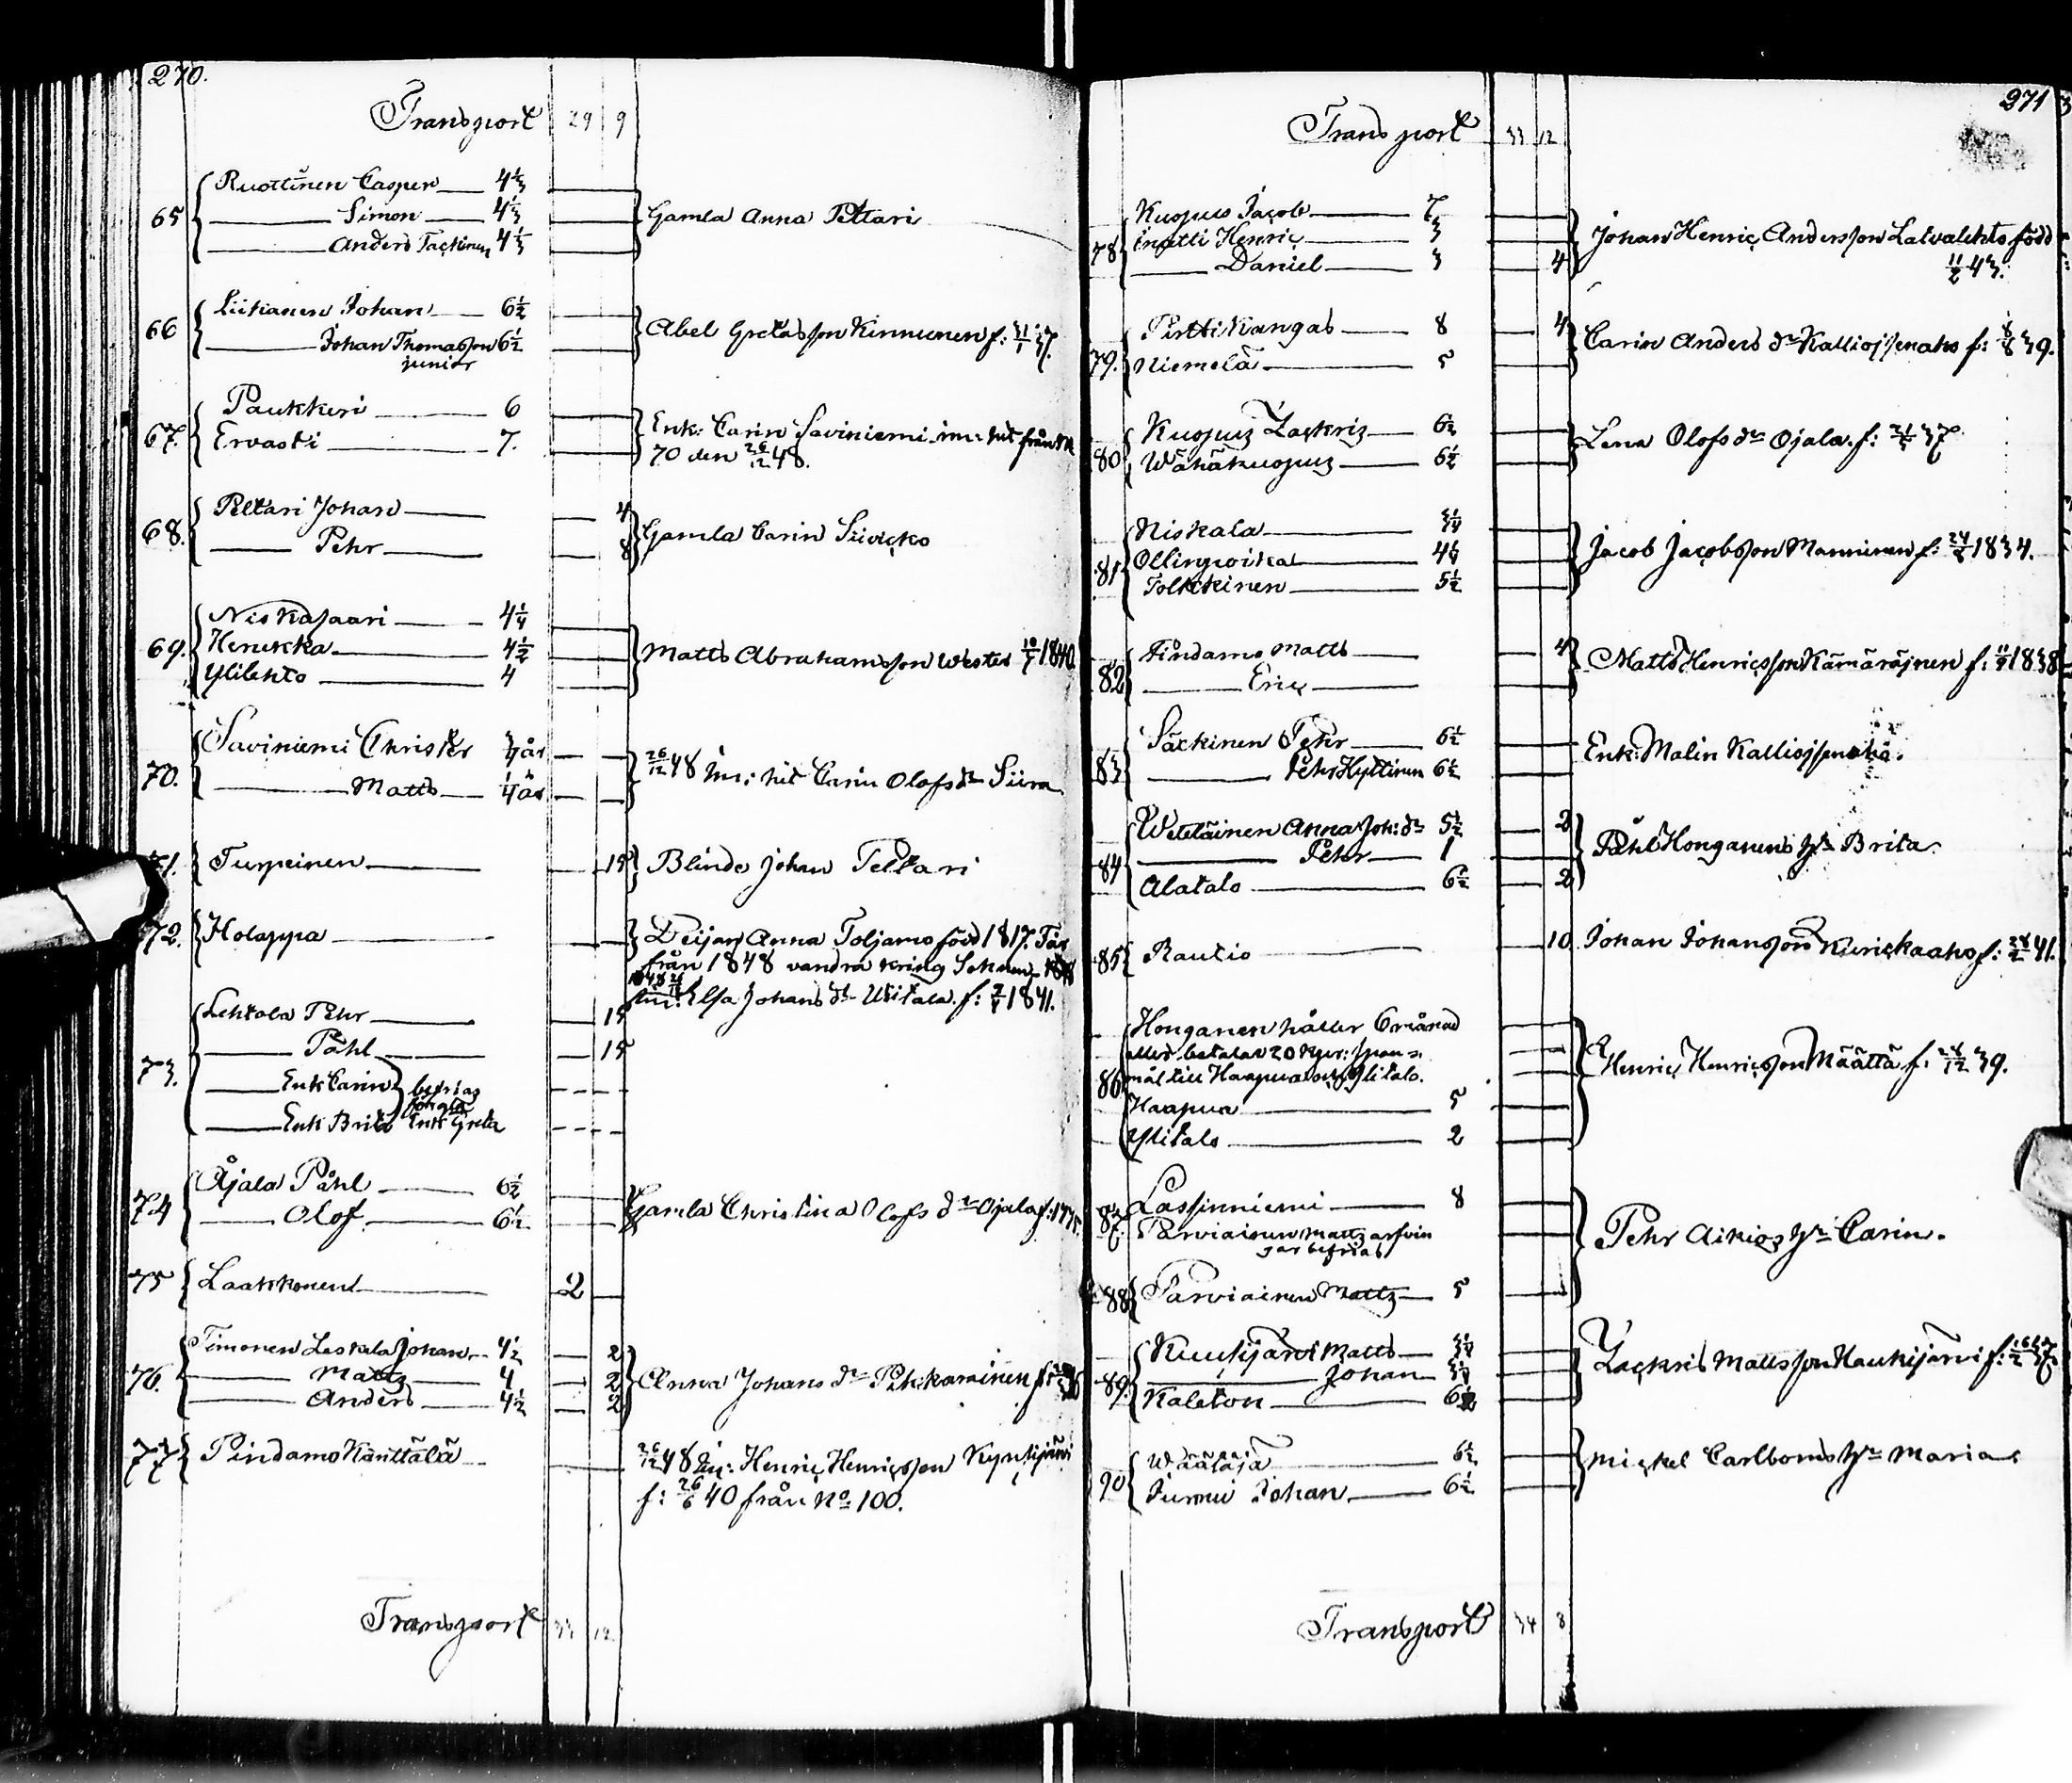 270.
Transport 29 9
65 Ruottinen Casper 4⅓
Simon 4⅓
Anders Tackinen 4⅓
Gamla Anna Peltari
66 Liikanen Johan 6½
Johan Thomasson 6½
junior
Abel Gretasson Kinnunen f: 31/1 37.
67. Paukkeri 6
Ervasti 7.
Enk: Carin Saviniemi in: hit från N
70 den 26/12 48.
68. Peltari Johan 4
Pehr 8
Gamla Carin
69. Niskasaari 4¼
Henukka 4½
Ylilehto 4
Matts Abrahamsson Wester 1840
70. Saviniemi Christer ¾ år
Matts ¼ år
26/12 48 in: hit Carin Olofs dr Siira
71. Turpeinen 15
Blinde Johan Peltari
72. Holappa
Deijan Anna Toljamo född 1817. Får
från 1848 vandra kring Soknen
Elsa Johans dr Uitala f: 1841.
73. Lehtola Pehr 15
Påhl 15
Enk Carin befrias
Enk Brita Enk Greta
74 Åjala Påhl 6½
Olof 6½
Gamla Christina Olofs dr Ojala
75 Laakkonen 2
76. Timonen Leskala Johan 4½ 2
Matts 4 2
Anders 4½ 2
Anna Johans dr
77 Pindamo Känttälä
26/12 48 in: Henric Henricsson
f: 26/6 40 från No 100.
Transport 33 12
271
Transport 33 12
78 Kuopus Jacob 7
Inatti Henric 3
Daniel 3 4
Johan Henric Andersson Latvalehto född
11/2 43.
79. Pirtti Kangas 8 4
Niemelä 5
Carin Anders dr Kalliojsenaho f: 8/8 39.
80 Kuopus Zackris 6½
Wähäkuopus 6½
Lena Olofs dr Ojala f: 37
81 Niskala 3¼
Ollinpoika 4¼
Tolkkinen 5½
Jacob Jacobsson Manninen f: 1834.
82 Pindamo Matts 4
Eric
Matts Henricsson Kämäräinen f: 1838
83 Säckinen Pehr 6½
Pehr Hyttinen 6½
Enk: Malin Kalliojsenaho.
84 Weteläinen Anna Joh: dr 5½ 2
Pehr 1
Alatalo 6½ 2
Påhl Honganens hr Brita.
85 Rautio 10
Johan Johansson f: 28/2 41.
86 Honganen håller 6 månad
eller betalar 20
mål till Haapua och Ylitalo.
Haapua 5
Ylitalo 2
Henric Henricsson Määttä f: 39.
87. Lassinniemi 8
Parviainen Matts arfvin
gar befrias
Pehr Aikios hr Carin.
88 Parviainen Matts 5
89. Kuukijärvi Matts 3¼
Johan 3¼
Kaleton 6½
Zackris Mattsson Haukijärvi f: 37
90 Wäätäjä 6½
Johan 6½
Mickel Carlboms hr Maria
Transport 34 8